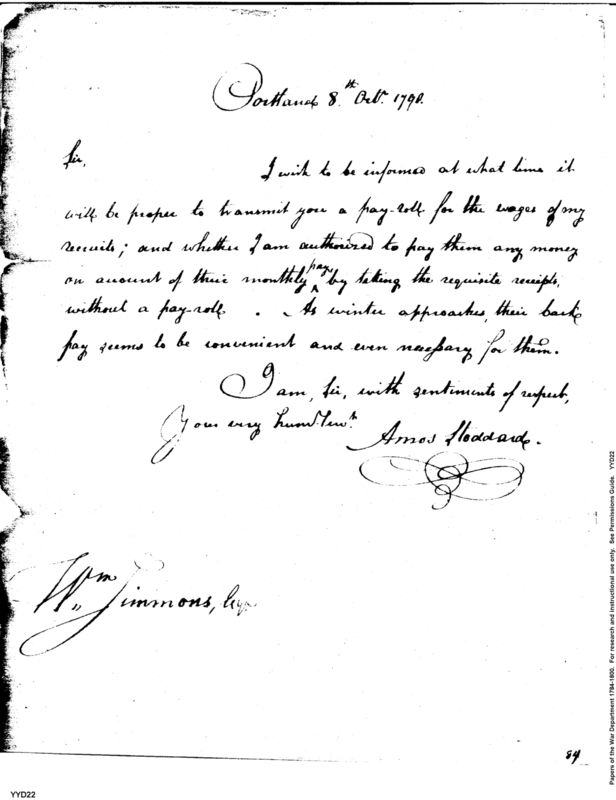 Portland 8th Octr. 1798.
Sir,
I wish to be informed at what time it
will be proper to transmit you a pay-roll for the wages of my
recruits; and whether I am authorized to pay them any money
on account of their monthly pay, by taking the requisite receipts,
without a pay-roll. As winter approaches, their back
pay seems to be convenient and even necessary for them.
I am, Sir, with sentiments of respect,
Your very hum. Servt.
Amos Stoddard.
Wm. Simmons, Esqr.
84
YYD22
Papers of the War Department 1784-1800. For research and instructional use only. See Permissions Guide. YYD22